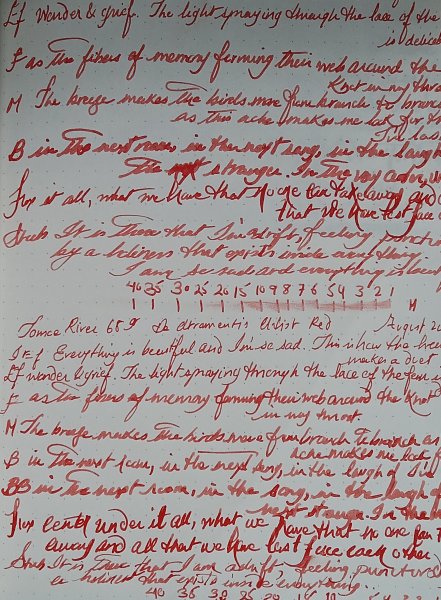 Ef Wonder & grief. The light spraying through the lace of the
is delicate
F as the fibers of memory forming their web around the
Knot in my throat
M The breeze makes the birds move from branch to branch
as this ache makes me look for th
I've lost
B in the next room, in the next song, in the laugh
The next stranger. In the very center, un
fux it all, what we have that no one can take away and
that We have lost face
Stub It is there that I'm adrift, feeling punctured
by a holiness that exists inside everything
I am so sad and everything is beau
40 35 30 25 20 15 10 9 8 7 6 5 4 3 2 1 H
Tomoe River 68g De Atramentis Artist Red August 2
EF Everything is beautiful and I'm so sad. This is how the hear
makes a duet
Ef wonder & grief. The light spraying through the lace of the fern is
F as the fibers of memory forming their web around the Knot
in my throat.
M The breeze makes the birds move from branch to branch as
ache makes me look f
B in the next room, in the next song, in the laugh of
BB in the next room, in the song, in the laugh of
next stranger. In the
fux center under it all, what we have that no one can t
away and all that we have lost face each other
Stub It is there that I am adrift, feeling punctured
a holiness that exists inside everything.
40 35 30 25 20 15 10